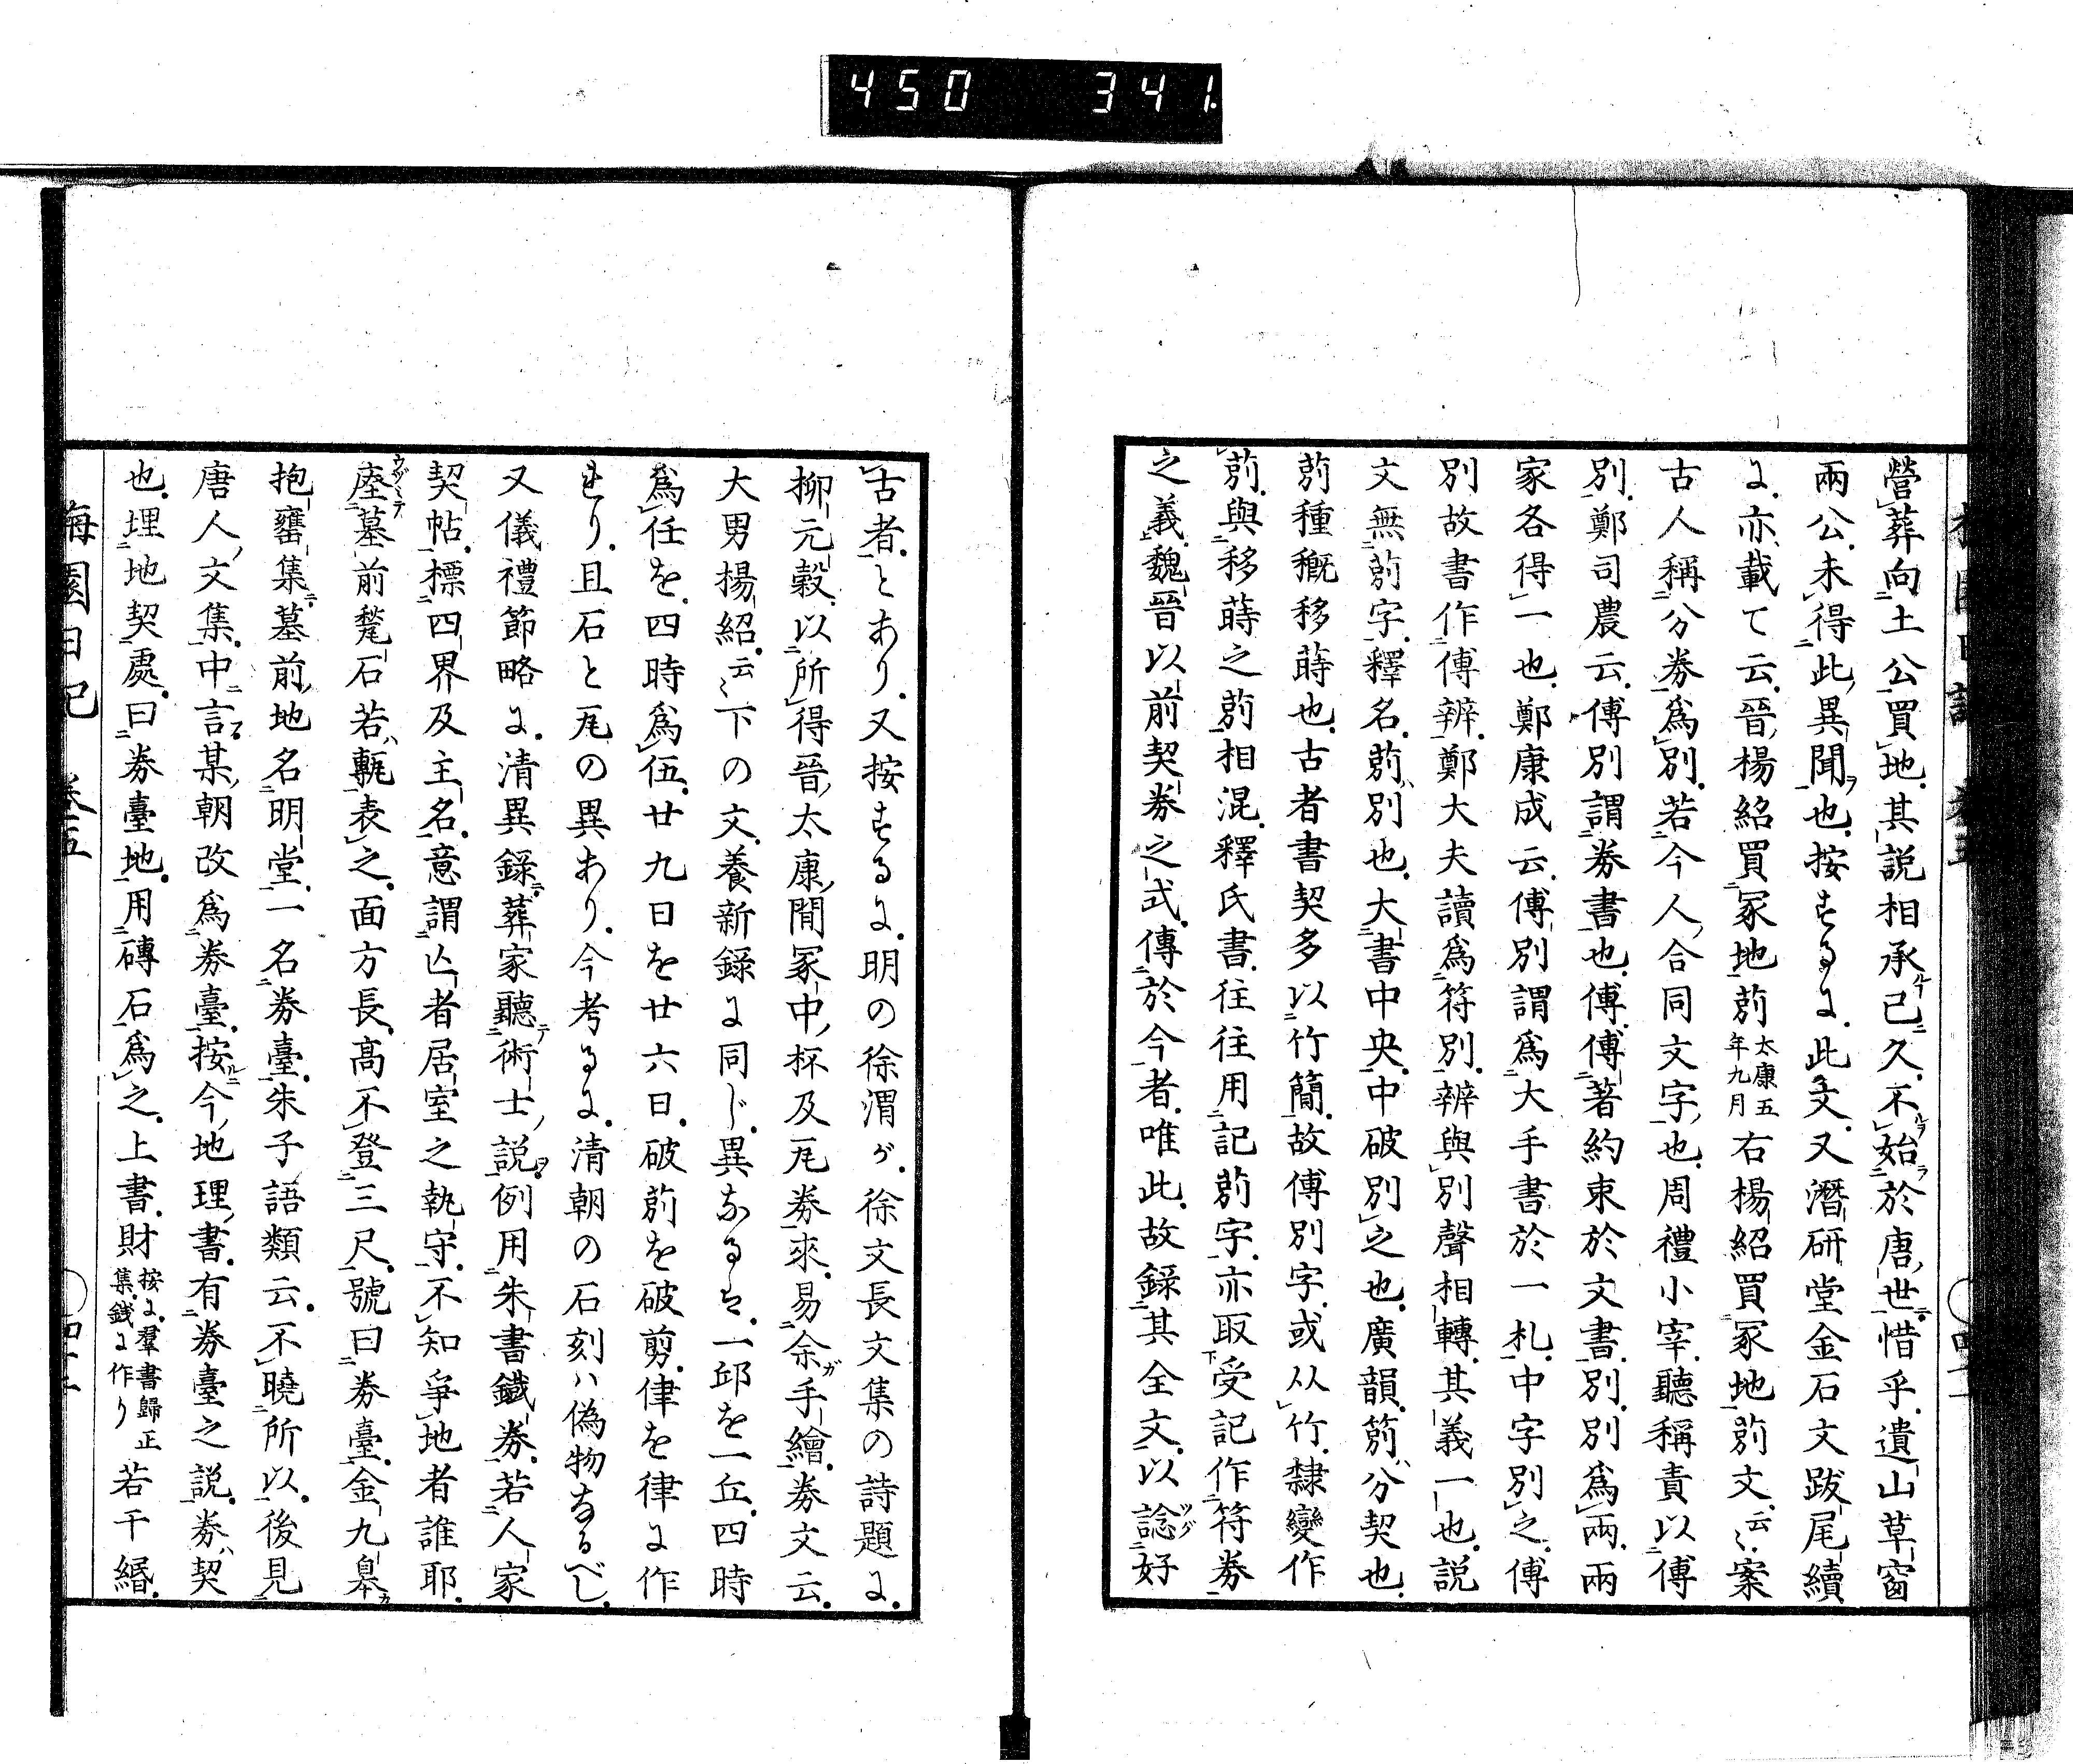 450 341
營葬向土公買地其説相承已久不始於唐世惜乎遺山草窗
兩公未得此異聞也按ずるに此文又潛研堂金石文跋尾續
に亦載て云晉楊紹買冢地莂太康五年九月右楊紹買冢地莂文云〻案
古人稱分券爲別若今人合同文字也周禮小宰聽稱責以傅
別鄭司農云傅別謂券書也傅傅著約束於文書別別爲兩兩
家各得一也鄭康成云傅別謂爲大手書於一札中字別之傅
別故書作傅辨鄭大夫讀爲符別辨與別聲相轉其義一也説
文無莂字釋名莂別也大書中央中破別之也廣韻莂分契也
莂種穊移蒔也古者書契多以竹簡故傅別字或从竹隸變作
莂與移蒔之莂相混釋氏書往往用記莂字亦取受記作符券
之義魏晉以前契券之式傳於今者唯此故録其全文以諗好
古者とあり又按ずるに明の徐渭が徐文長文集の詩題に
柳元穀以所得晉太康間冢中杯及瓦券來易余手繪券文云
大男楊紹云〻下の文養新録に同じ異なるは一邱を一丘四時
爲任を四時爲伍廿九日を廿六日破莂を破剪律を律に作
れり且石と瓦の異あり今考るに清朝の石刻ハ偽物なるべし
又儀禮節略に清異錄葬家聽術士説例用朱書鐵券若人家
契帖標四界及主名意謂亡者居室之執守不知爭地者誰耶
庢墓前甃石若甎表之面方長高不登三尺號曰券臺金九皋
抱甕集墓前地名明堂一名券臺朱子語類云不曉所以後見
唐人文集中言某朝改爲券臺按今地理書有券臺之説券契
也埋地契處曰券臺地用磚石爲之上書財按に羣書歸正集錢に作り若干緡
梅園日記 卷五